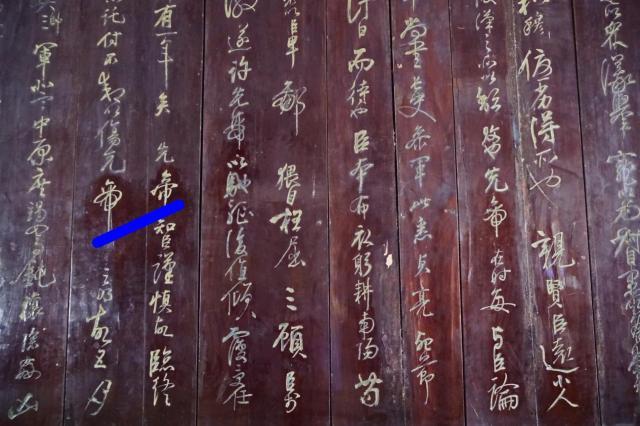 以眾議舉寵以為督愚
和穆優劣得所也親賢臣遠小人
後漢之所以傾頹先帝在時每與臣論
書長史參軍此悉貞亮死節
計日而待也臣本布衣躬耕南陽苟
卑鄙猥自枉屈三顧臣於
激遂許先帝以馳驅後值傾覆受任
有一年矣先帝知臣謹慎故臨終
託付不效以傷先帝之明故五月
帥三軍北定中原庶竭駑鈍攘除姦凶